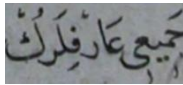 جميعي عارفلرڭ